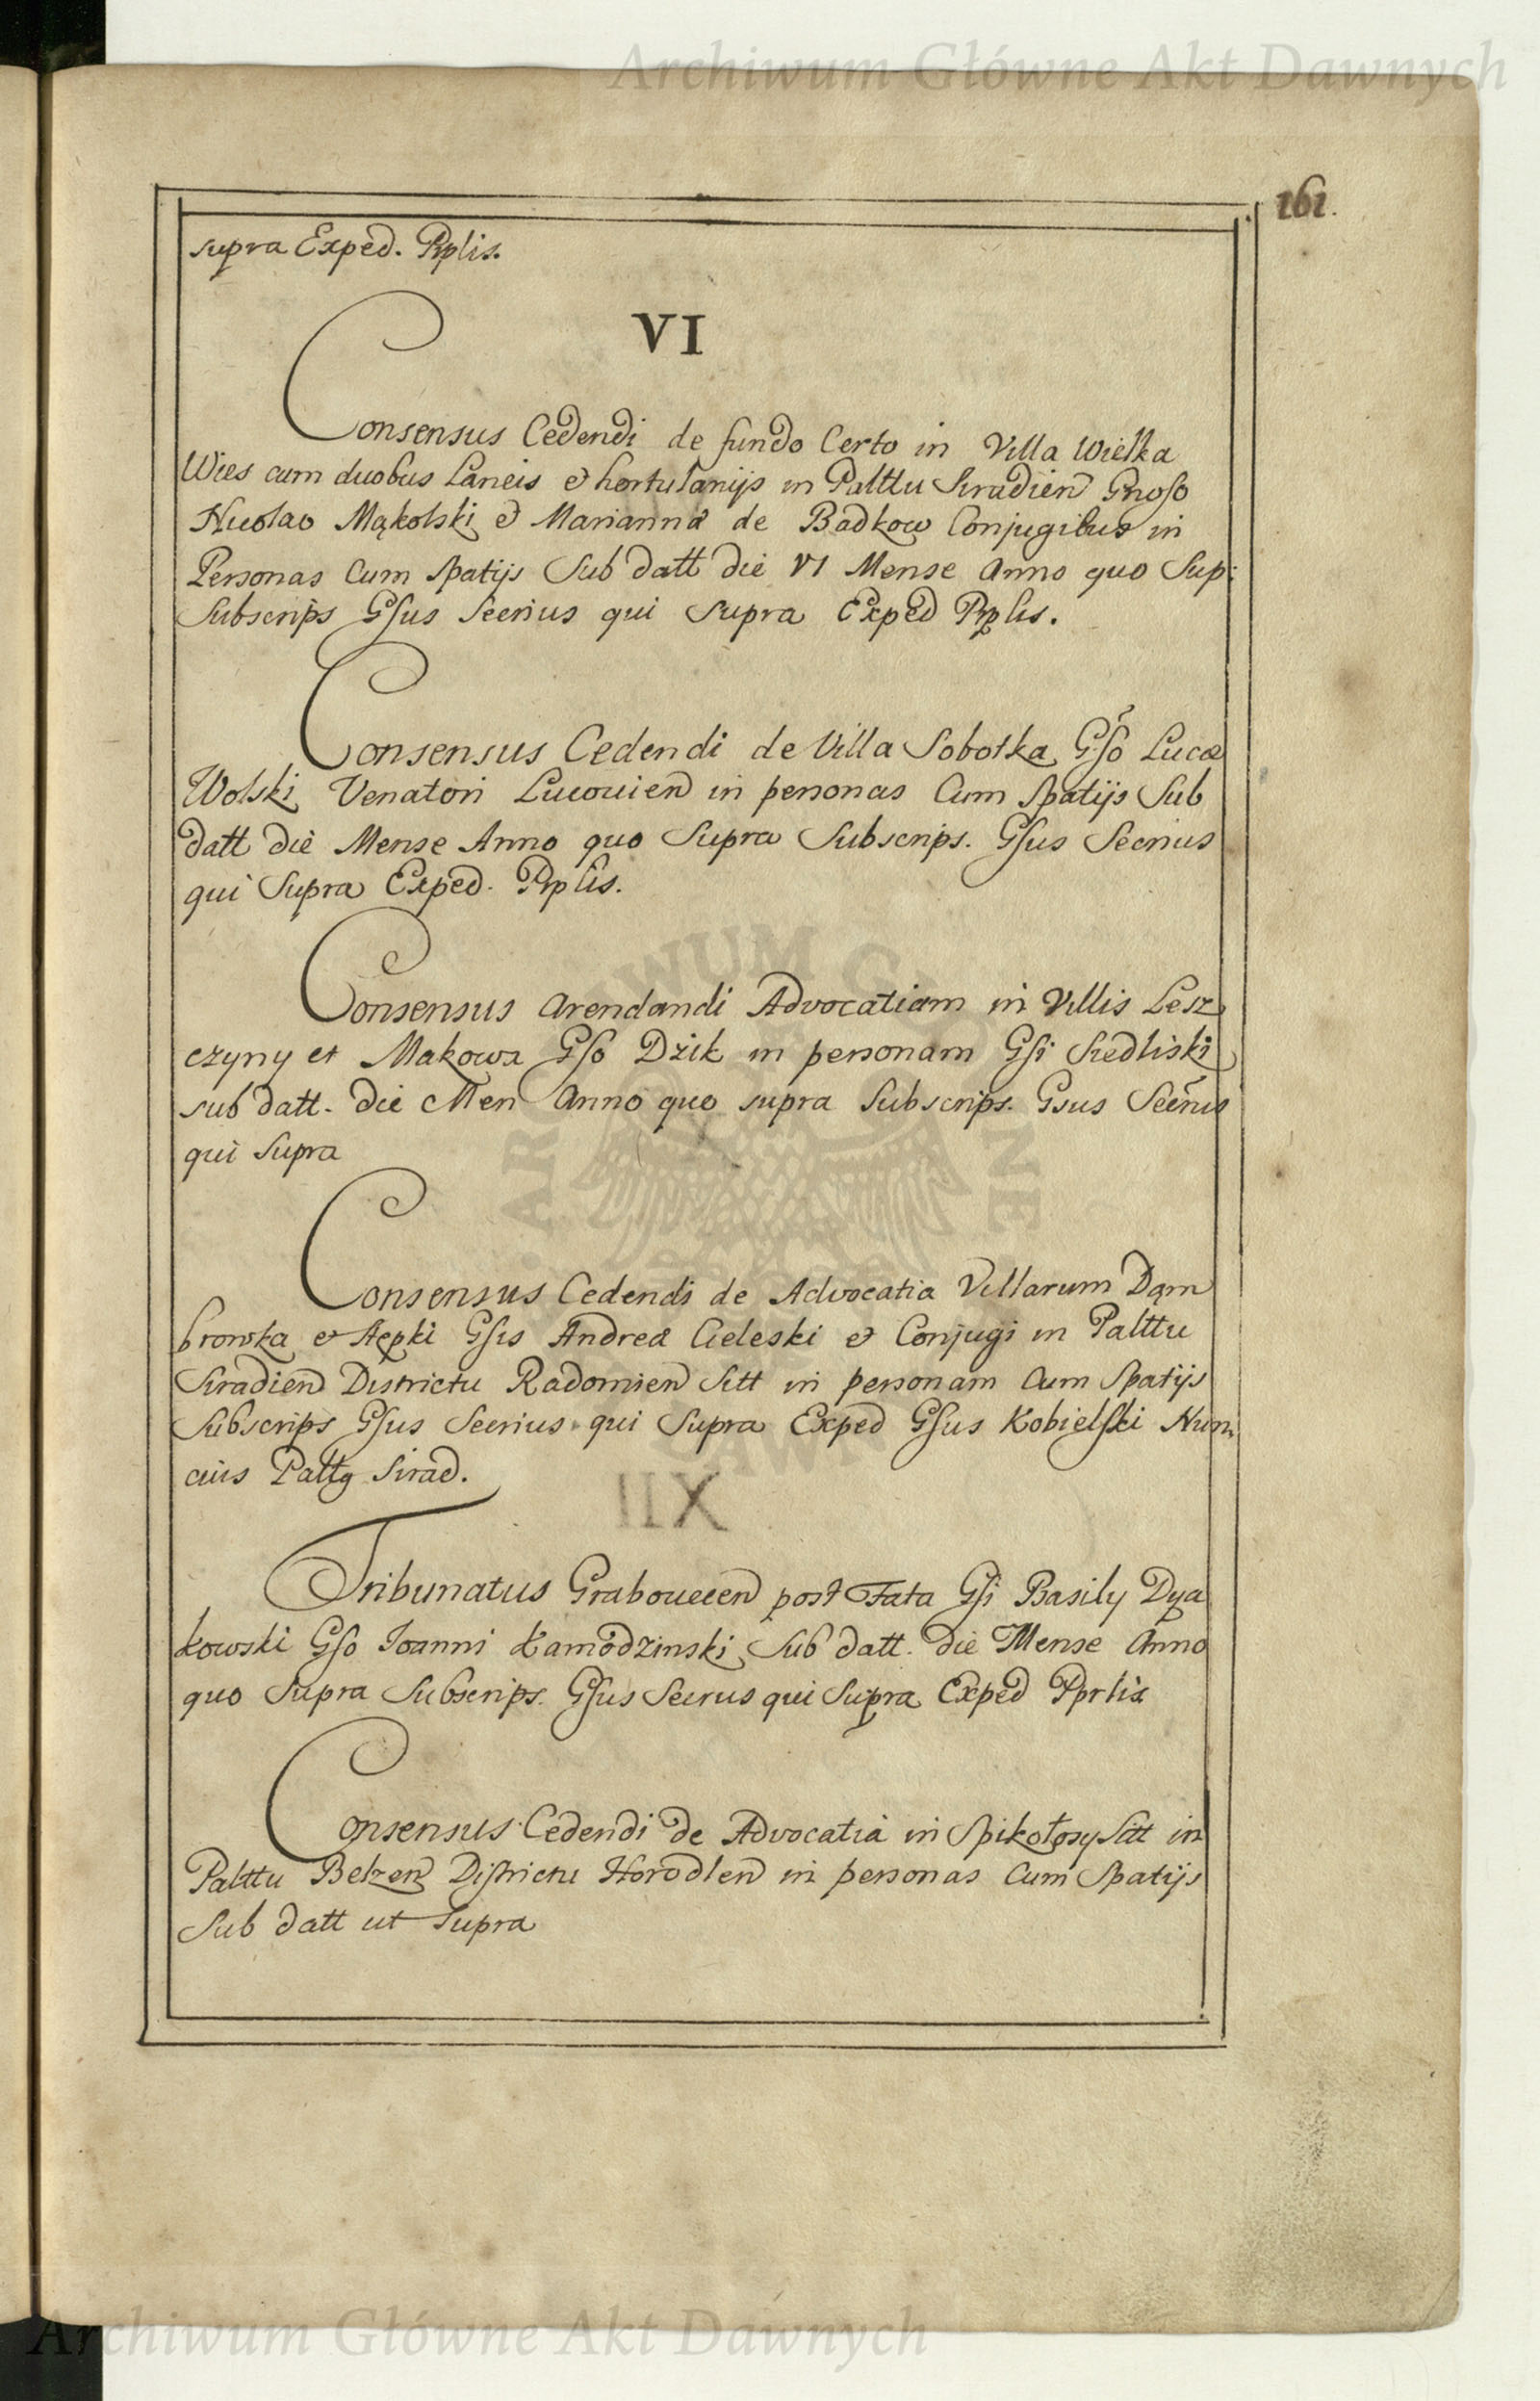 Archiwum Główne Akt Dawnych
161.
supra Exped. Rplis.
VI
Consensus Cedendi de fundo Certo in Villa Wielka
Wies cum duobus Laneis et hortulanijs in Palttu Siradien Gnoso
Nicolao Mąkolski et Marianna de Badkow Conjugibus in
Personas Cum Spatijs Sub datt die VI Mense Anno quo Sup:
Subscrips Gsus Secrius qui supra Exped Rplis.
Consensus Cedendi de Villa Sobotka Gso Lucæ
Wolski Venatori Lucovien in personas Cum Spatijs Sub
datt die Mense Anno quo Supra Subscrips. Gsus Secrius
qui Supra Exped. Rplis.
Consensus Arendandi Advocatiam in Villis Lesz
czyny et Makowa Gso Dzik in personam Gsi Siedliski
sub datt. die Men Anno quo supra Subscrips. Gsus Secrius
qui Supra
Consensus Cedendi de Advocatia Villarum Dąm
browka et Gsis Andreæ Cieleski et Conjugi in Palttu
Siradien Districtu Radomien Sitt in personam Cum Spatijs
Subscrips Gsus Secrius qui Supra Exped Gsus Kobielski Nun
cius Palttq Sirad.
IIX
Tribunatus Grabovecen post Fata Gsi Basily Dya
kowski Gso Joanni Kamodzinski Sub datt. die Mense Anno
quo Supra Subscrips. Gsus Secrus qui Supra Exped Pprlis
Consensus Cedendi de Advocatia in Spikołosy Sitt in
Palttu Belzen Districtu Horodlen in personas Cum Spatijs
Sub datt ut Supra
Archiwum Główne Akt Dawnych